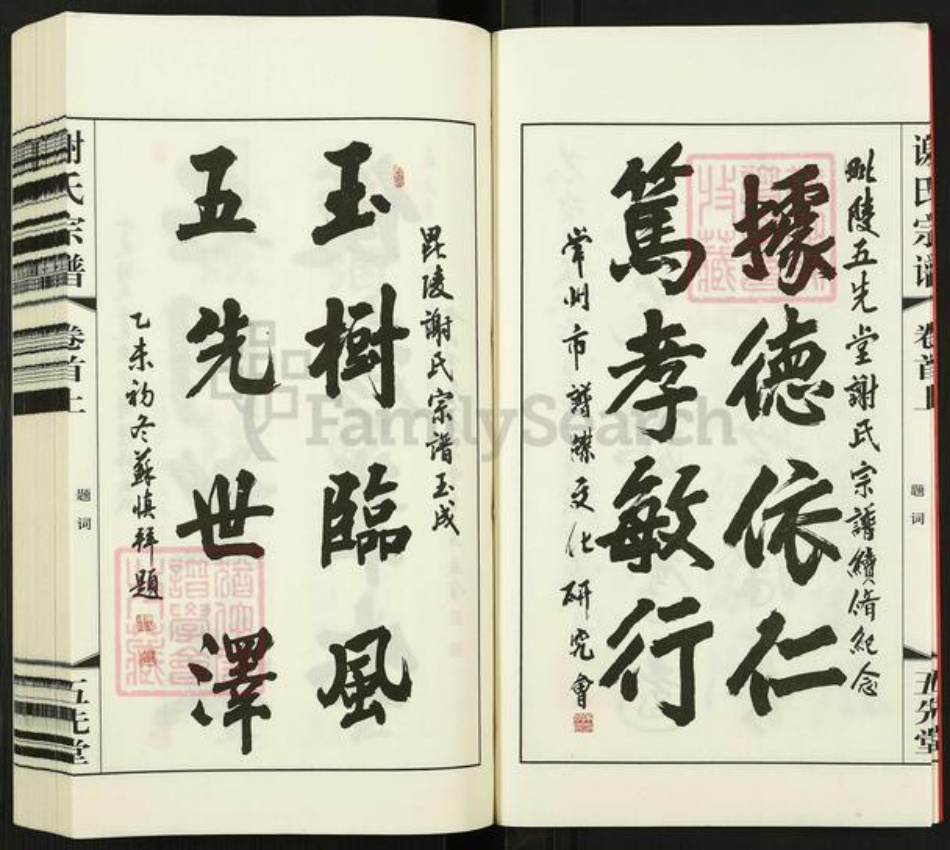 毗陵五先堂謝氏宗譜續修紀念
據德依仁
篤孝敏行
常州市譜牒文化研究會
谢氏宗谱
卷首上
题词
五先堂
毘陵謝氏宗譜玉成
玉樹臨風
五先世澤
乙未初冬蘇慎拜題
谢氏宗谱
卷首上
题词
五先堂
FamilySearch